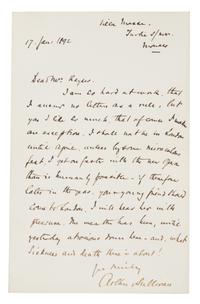 17 Jan 1892
Monaco
Dear Mrs Rogers
I am so hard at work, that
I answer no letters as a rule, but
you I like so much, that of course I make
an exception. I shall not be in London
until April, unless by some miraculous
feat, I get on faster with the new Opera
than is humanly possible - if therefore
later in the year, your young friend
come to London, I will hear her with
pleasure. The weather has been, until
yesterday atrocious down here - and, what
sickness and death there is about!
Arthur Sullivan